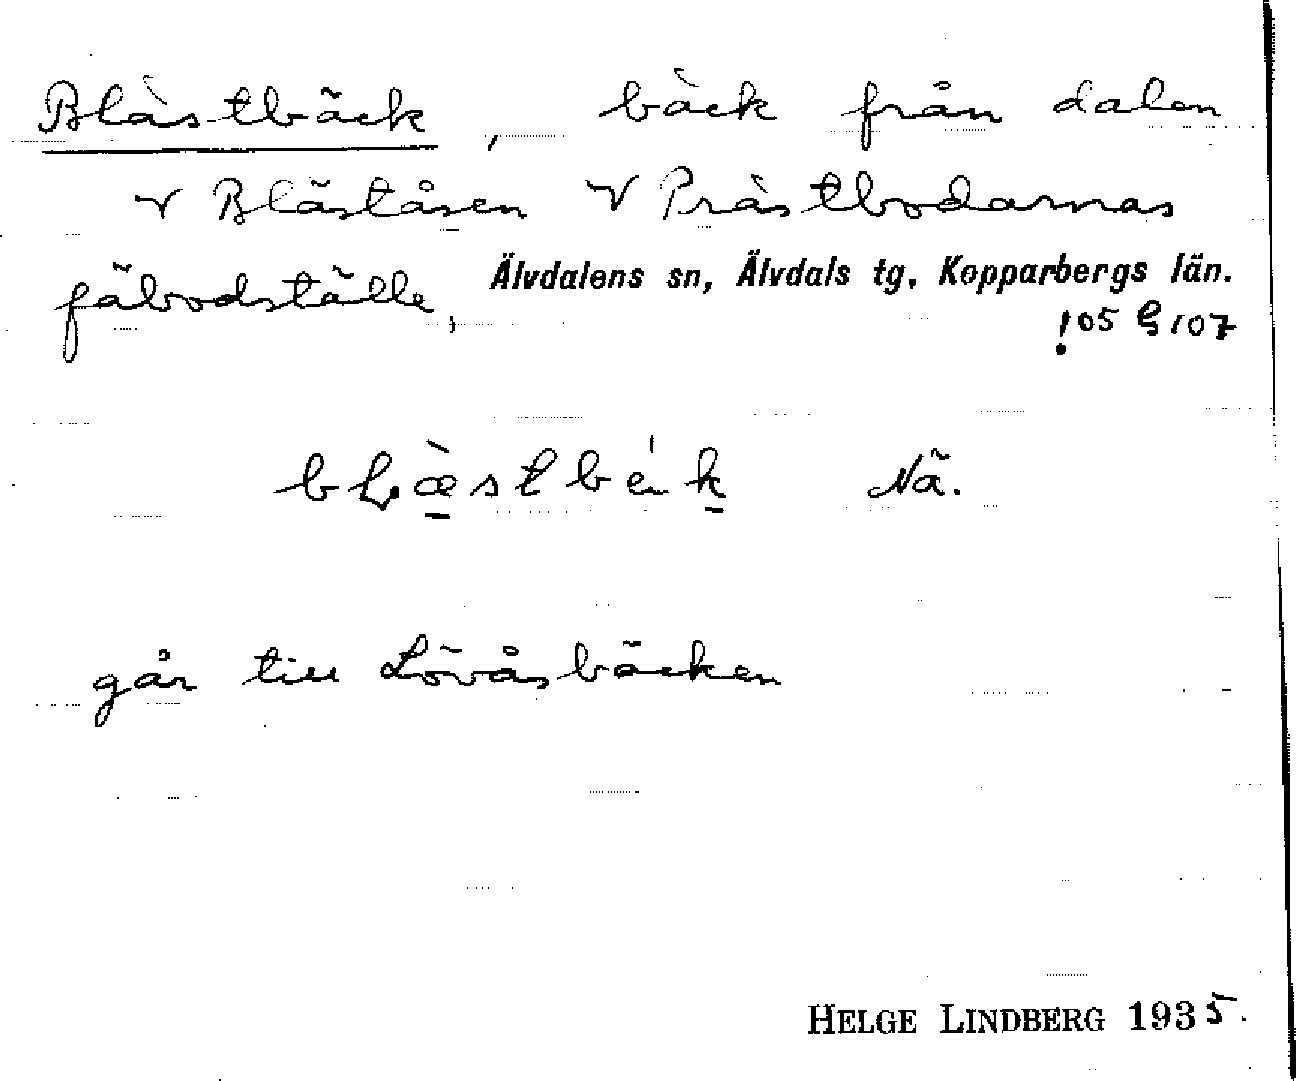 Blästbäck, bäck från dalen
v Bläståsen V Prästbodarnas
fäbodställe, Älvdalens sn, Älvdals tg, Kopparbergs län.
Nä.
går till Lövåsbäcken
HELGE LINDBERG 1935.